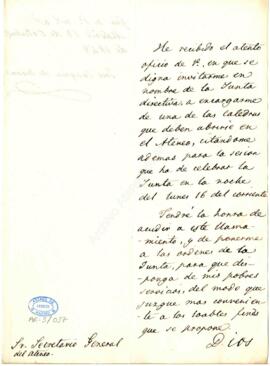 He recibido el atento
oficio de V. en que se
digna invitarme en
nombre de la Junta
directiva, a encargarme
de una de las cátedras
que deben abrirse en
el Ateneo, citándome
ademas para la sesion
que ha de celebrar la
Junta en la noche
del lunes 16 del corriente.
Tendré la honra de
acudir a este llama-
miento, y de ponerme
a las ordenes de la
Junta, para que dis-
ponga de mis pobres
servicios, del modo que
juzgue mas convenien-
te a los loables fines
que se propone.
Dios
Sr. Secretario General
del Ateneo.